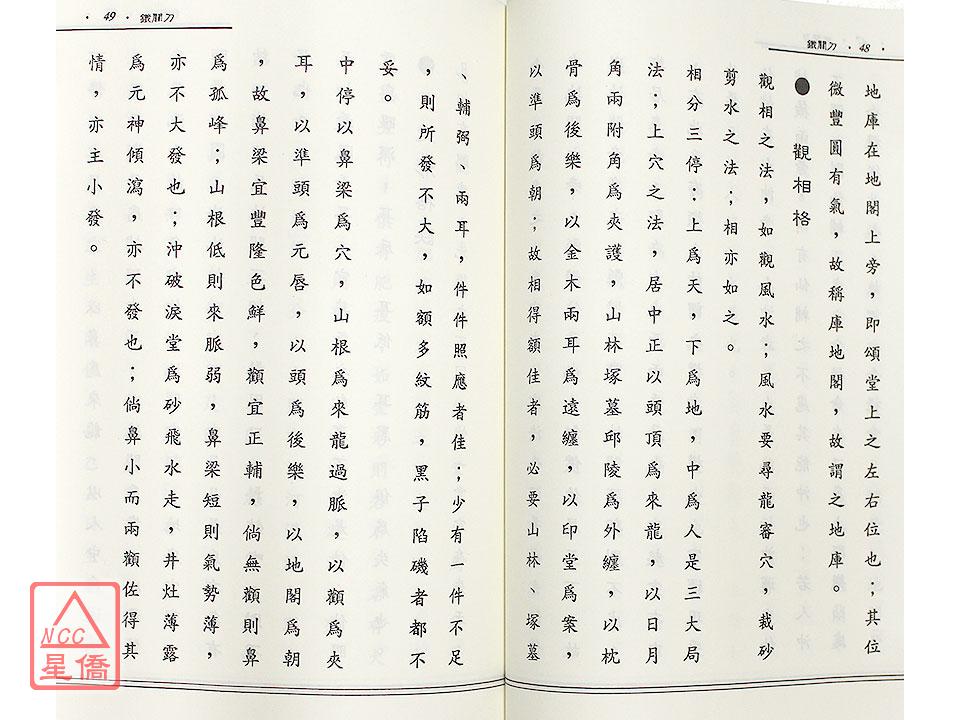 鐵關刀 • 48 •
地庫在地閣上旁，即頌堂上之左右位也；其位
微豐圓有氣，故稱庫地閣，故謂之地庫。
●觀相格
觀相之法，如觀風水；風水要尋龍審穴，裁砂
剪水之法；相亦如之。
相分三停：上爲天，下爲地，中爲人是三大局
法；上穴之法，居中正以頭頂爲來龍，以日月
角兩附角爲夾護，山林塚墓邱陵爲外纏，以枕
骨爲後樂，以金木兩耳爲遠纏，以印堂爲案，
以準頭爲朝；故相得額佳者，必要山林、塚墓
• 49 • 鐵關刀
、輔弼、兩耳，件件照應者佳；少有一件不足
，則所發不大，如額多紋筋，黑子陷磯者都不
妥。
中停以鼻梁爲穴，山根爲來龍過脈，以顴爲夾
耳，以準頭爲元唇，以頭爲後樂，以地閣爲朝
，故鼻梁宜豐隆色鮮，顴宜正輔，倘無顴則鼻
爲孤峰；山根低則來脈弱，鼻梁短則氣勢薄，
亦不大發也；沖破淚堂爲砂飛水走，井灶薄露
爲元神傾瀉，亦不發也；倘鼻小而兩顴佐得其
情，亦主小發。
NCC
星僑